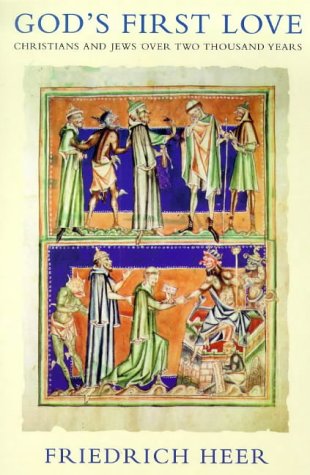 GOD'S FIRST LOVE
CHRISTIANS AND JEWS OVER TWO THOUSAND YEARS
FRIEDRICH HEER